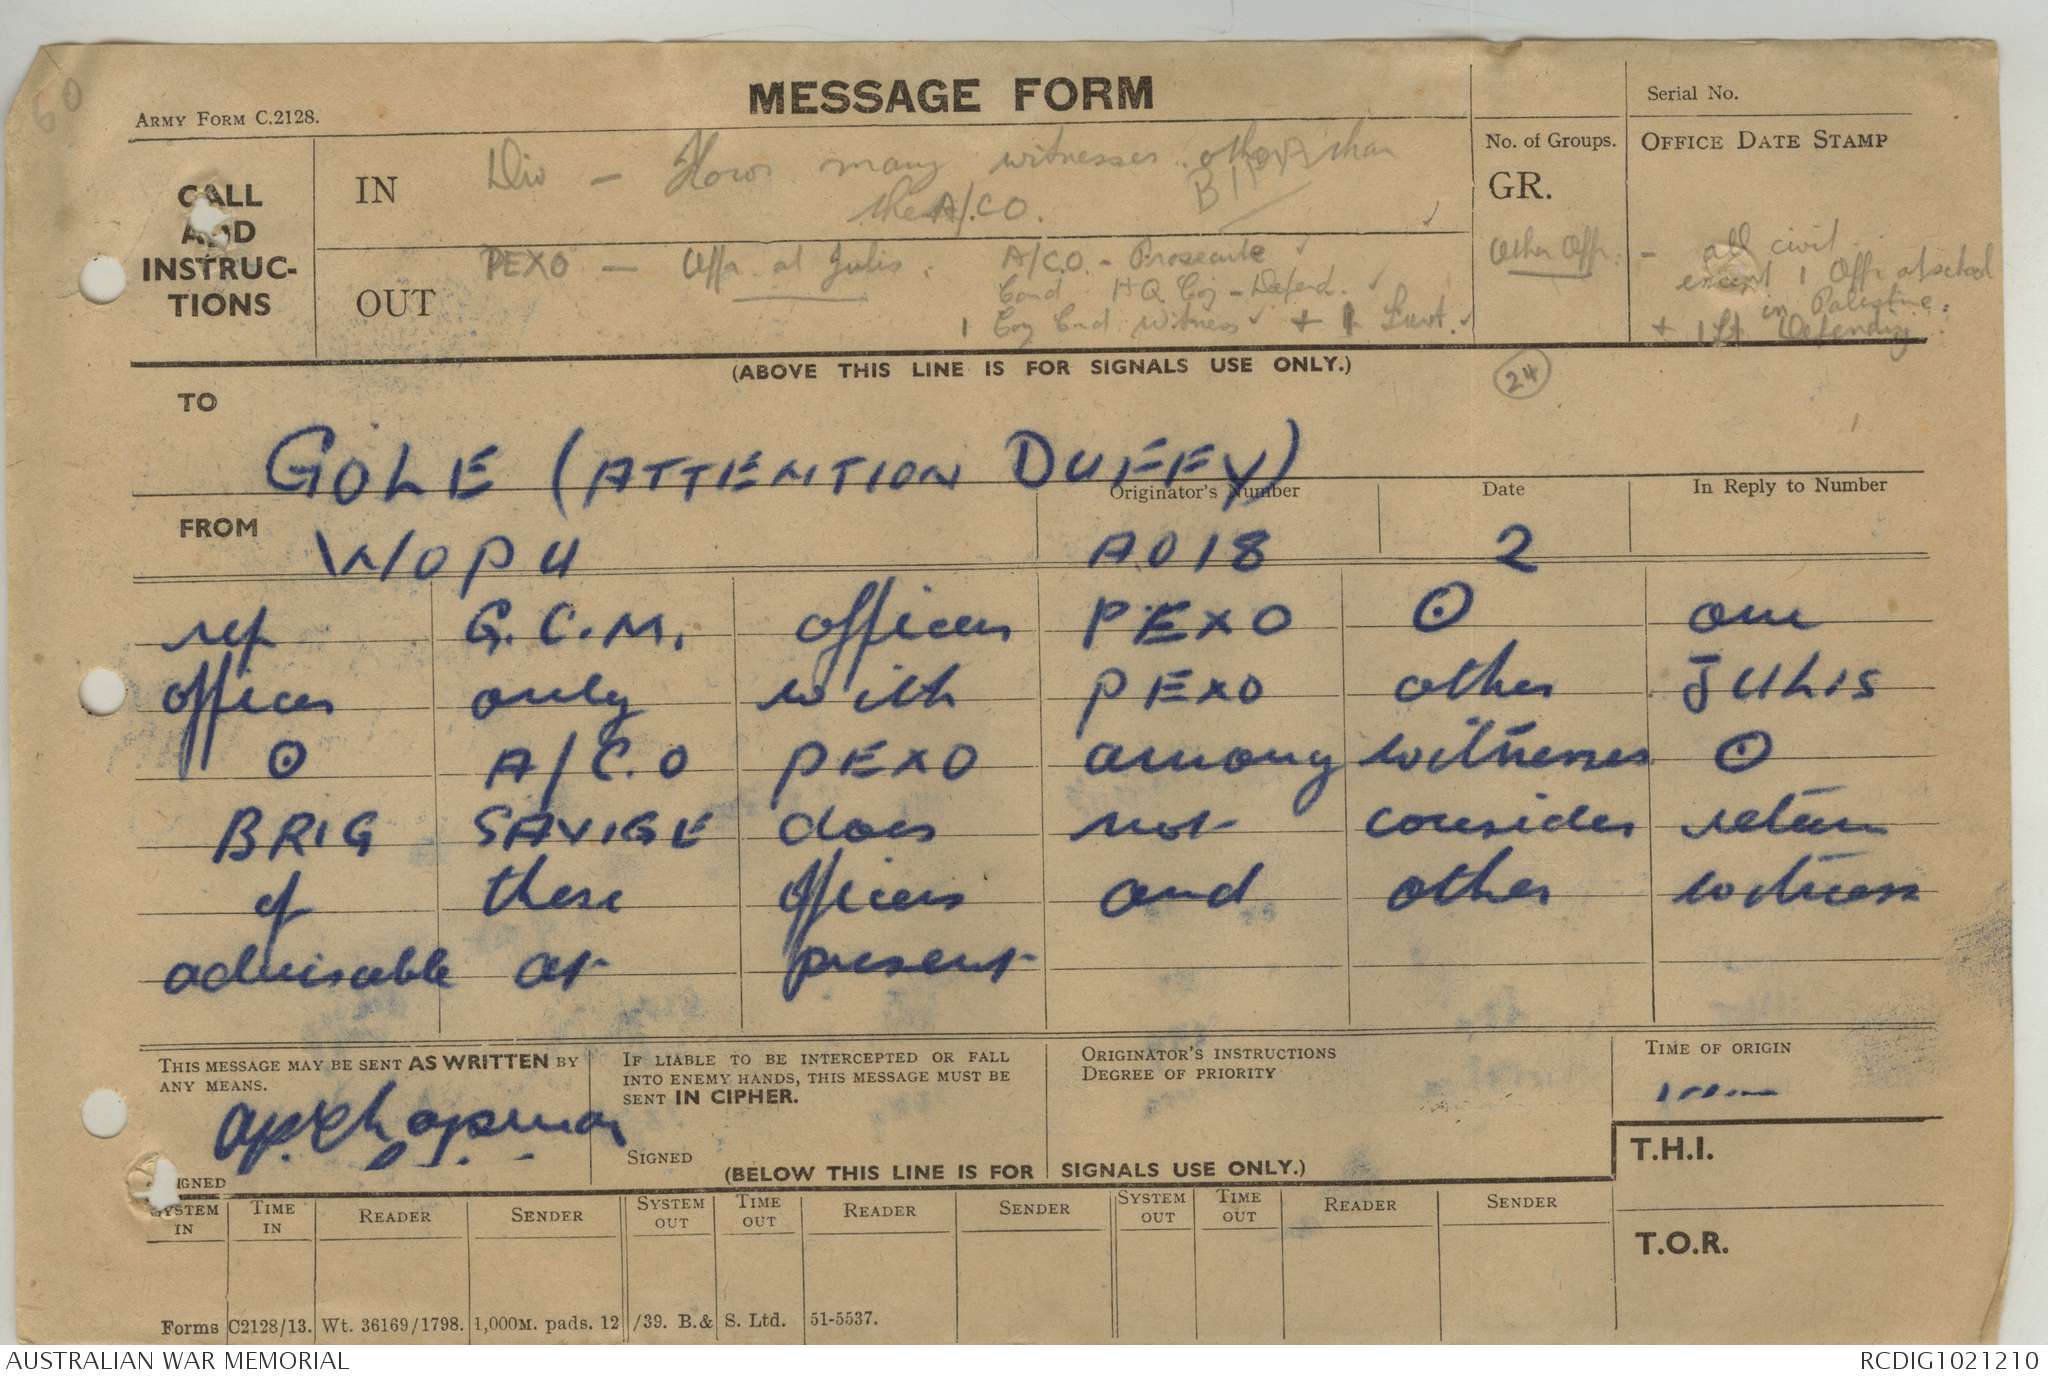 60
MESSAGE FORM
ARMY FORM C.2128.
Serial No.
CALL AND INSTRUC-TIONS
IN
Div - How many witnesses other than
the A/CO.
No. of Groups.
GR.
OFFICE DATE STAMP
OUT
PEXO - Offr at Julis.
A/C.O. - Prosecute ✓
Comd HQ Coy - Defend. ✓
1 Coy Comd Witness ✓ + 1 Lieut. ✓
Other Offr. - all civil
except 1 Offr at school
in Palestine.
+ 1 Lt. Defending
(ABOVE THIS LINE IS FOR SIGNALS USE ONLY.)
24
TO
GOLE (ATTENTION DUFFY)
Originator's Number
Date
In Reply to Number
FROM
WOPU A018 2
ref G.C.M. officers PEXO ⊙ one
officer only with PEXO other JULIS
⊙ A/C.O PEXO among witnesses ⊙
BRIG SAVIGE does not consider return
of these officers and other witness
advisable at present
THIS MESSAGE MAY BE SENT AS WRITTEN BY
ANY MEANS.
IF LIABLE TO BE INTERCEPTED OR FALL
INTO ENEMY HANDS, THIS MESSAGE MUST BE
SENT IN CIPHER.
ORIGINATOR'S INSTRUCTIONS
DEGREE OF PRIORITY
TIME OF ORIGIN
SIGNED
(BELOW THIS LINE IS FOR SIGNALS USE ONLY.)
T.H.I.
SYSTEM IN TIME IN READER SENDER SYSTEM OUT TIME OUT READER SENDER SYSTEM OUT TIME OUT READER SENDER
T.O.R.
Forms C2128/13. Wt. 36169/1798. 1,000M. pads. 12/39. B.& S. Ltd. 51-5537.
AUSTRALIAN WAR MEMORIAL
RCDIG1021210